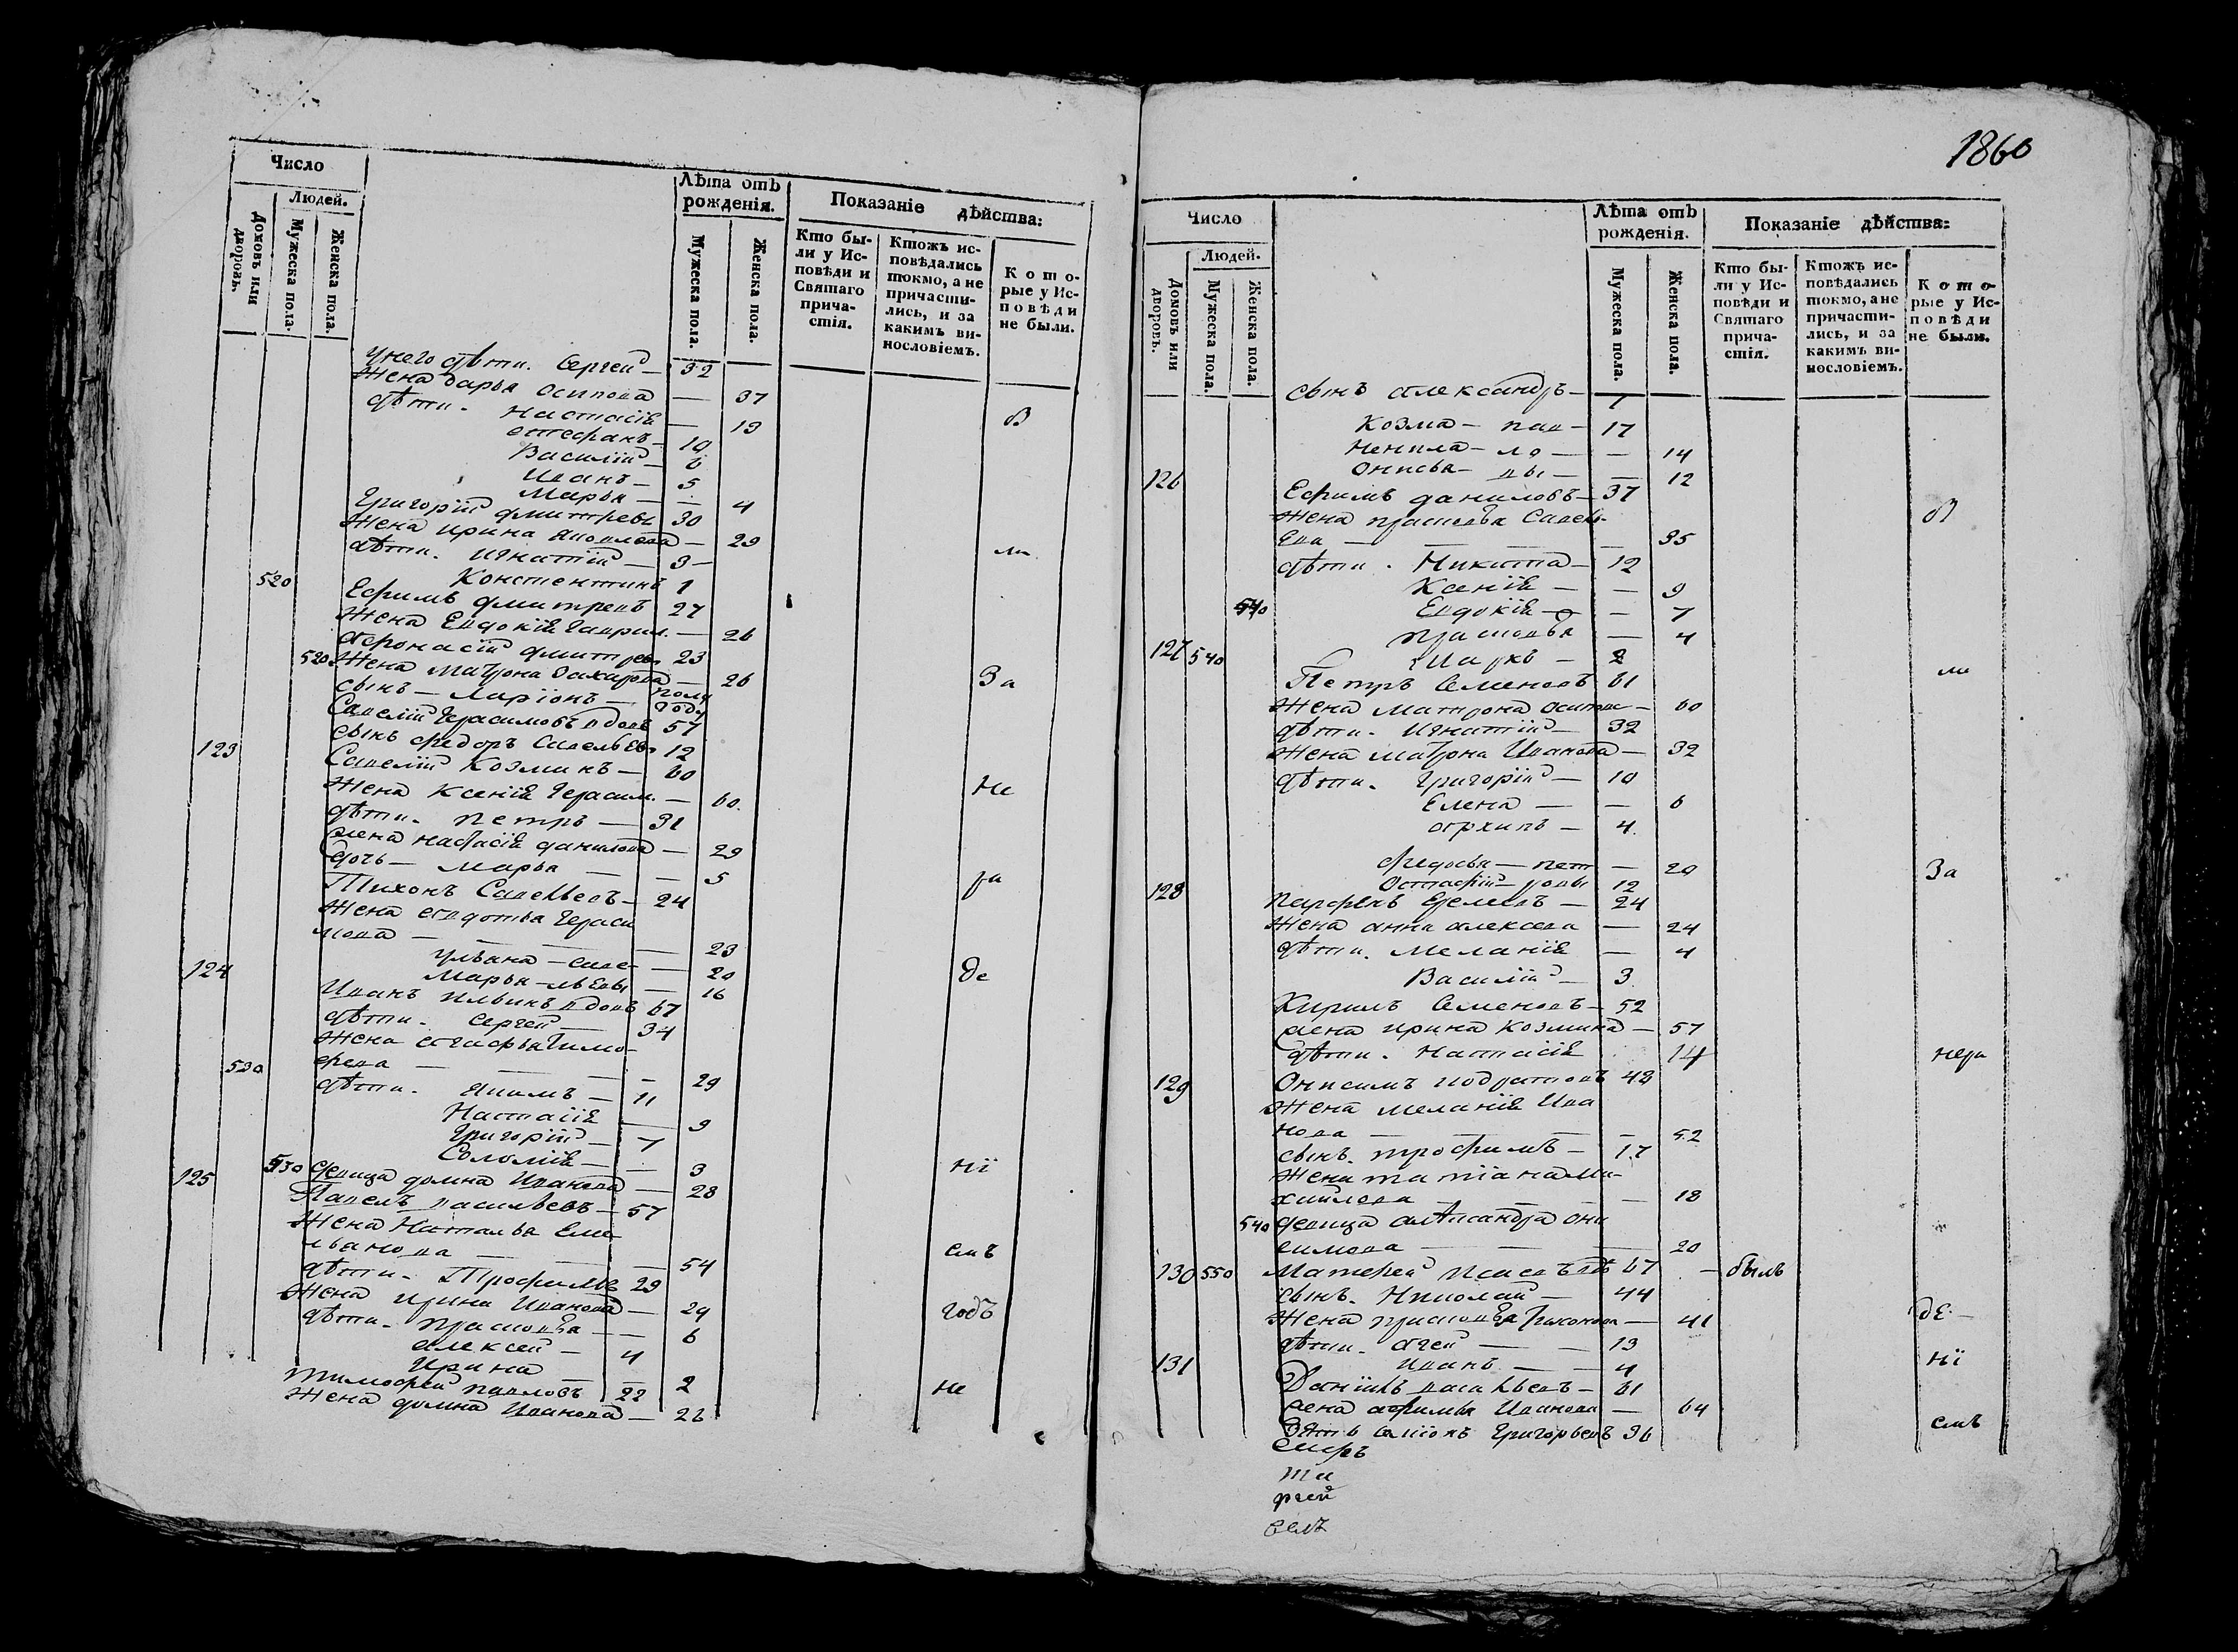 Число
Людей.
Домовъ или дворовъ.
Мужеска пола.
Женска пола.
Лѣта отъ рожденія.
Мужеска пола.
Женска пола.
Показаніе дѣйства:
Кто бы-
ли у Ис-
повѣди и
Святаго
прича-
стія.
Ктожъ ис-
повѣдались
токмо, а не
причасти-
лись, и за
какимъ ви-
нословіемъ.
К о т о-
рые у Ис-
п о в ѣ д и
не были.
У него дѣти. Сергей — 32
Жена Дарья Осипова — 37
дѣти. Настасія — 19 В
Стефанъ — 10
Василій — 6
Иванъ — 5
Марья — 4
Григорій Дмитревъ 30
Жена Ирина Яковлева — 29 ли
дѣти. Игнатій — 3
520 Констентинъ 1
Ефимъ Дмитревъ 27
Жена Евдокія Гаврил. — 26
Афонасій Дмитрев. 23
520 Жена Матрона Захарова — 26 За
сынъ — Ларіонъ — полу года
Савелій Герасимовъ вдовъ 57
сынъ Федоръ Савельев. 12
123 Савелій Козминъ — 60
Жена Ксенія Герасим. — 60. Не
дѣти. Петръ — 31
жена Настасія Данилова — 29
дочь — Марья — 5
Тихонъ Савельевъ — 24 ра
Жена Евдотья Гераси
мова — 23
Ульяна — Саве- — 20
Марья — льевы — 16 де
124 Иванъ Ильинъ вдовъ 67
дѣти. Сергей — 34
Жена Агафья Тимо-
феева — 29
530 дѣти. Якимъ — 11
Настасія — 9
Григорій — 7
Соломія — 3 ні
530 девица Домна Иванова — 28
125 Павелъ Васильевъ — 57
Жена Наталья Еме
льянова — 54 емъ
дѣти. Трофимъ 29
Жена Ирина Иванова — 29 годъ
дѣти. Прасковья — 6
Алексей — 4
Ирина — 2
Тимофей Павловъ 22 Не
Жена Домна Иванова — 26
1860
Число
Людей.
Домовъ или дворовъ.
Мужеска пола.
Женска пола.
Лѣта отъ рожденія.
Мужеска пола.
Женска пола.
Показаніе дѣйства:
Кто бы-
ли у Ис-
повѣди и
Святаго
прича-
стія.
Ктожъ ис-
повѣдались
токмо, а не
причасти-
лись, и за
какимъ ви-
нословіемъ.
К о т о-
рые у Ис-
п о в ѣ д и
не были.
сынъ Александръ — 1
Козма — пав — 17
Ненила — ло — 14
Онисья — вы — 12
126 Ефимъ Даниловъ — 37
Жена Прасковья Савель- В
ева — 35
дѣти. Никита — 12
Ксенія — 9
540 Евдокія — 7
Прасковья — 4
540 Маркъ — 2
127 Петръ Семеновъ 61 ли
Жена Матрона Осипов — 60
дѣти. Игнатій — 32
Жена Матрона Иванова — 32
дѣти. Григорій — 10
Елена — 6
Архипъ — 4.
Федосья — пет — 20 За
Остафій — ровы 12
128 Парфенъ Еремеевъ — 24
Жена Анна Алексева — 24
дѣти. Меланія — 4
Василій — 3
Кирилъ Семеновъ — 52
жена Ирина Козмина — 57
дѣти. Настасія 14 нера
129 Онисимъ Кодратовъ 48
Жена Меланія Ива
нова — 52
сынъ. Трофимъ — 17
Жена Татіана Ми-
хайлова — 18
540 девица Александра Они
симова — 20
130 550 Матфей Исаевъ вдов 67 — былъ
сынъ. Николай — 44
Жена Прасковья Тихонова — 41 де —
дѣти. Агей — 13
Иванъ — 4 ні
131 Данилъ Васильевъ — 61
жена Афимья Иванова — 64
зять Симіонъ Григорьевъ 36 емъ
Сифъ
ти
рей